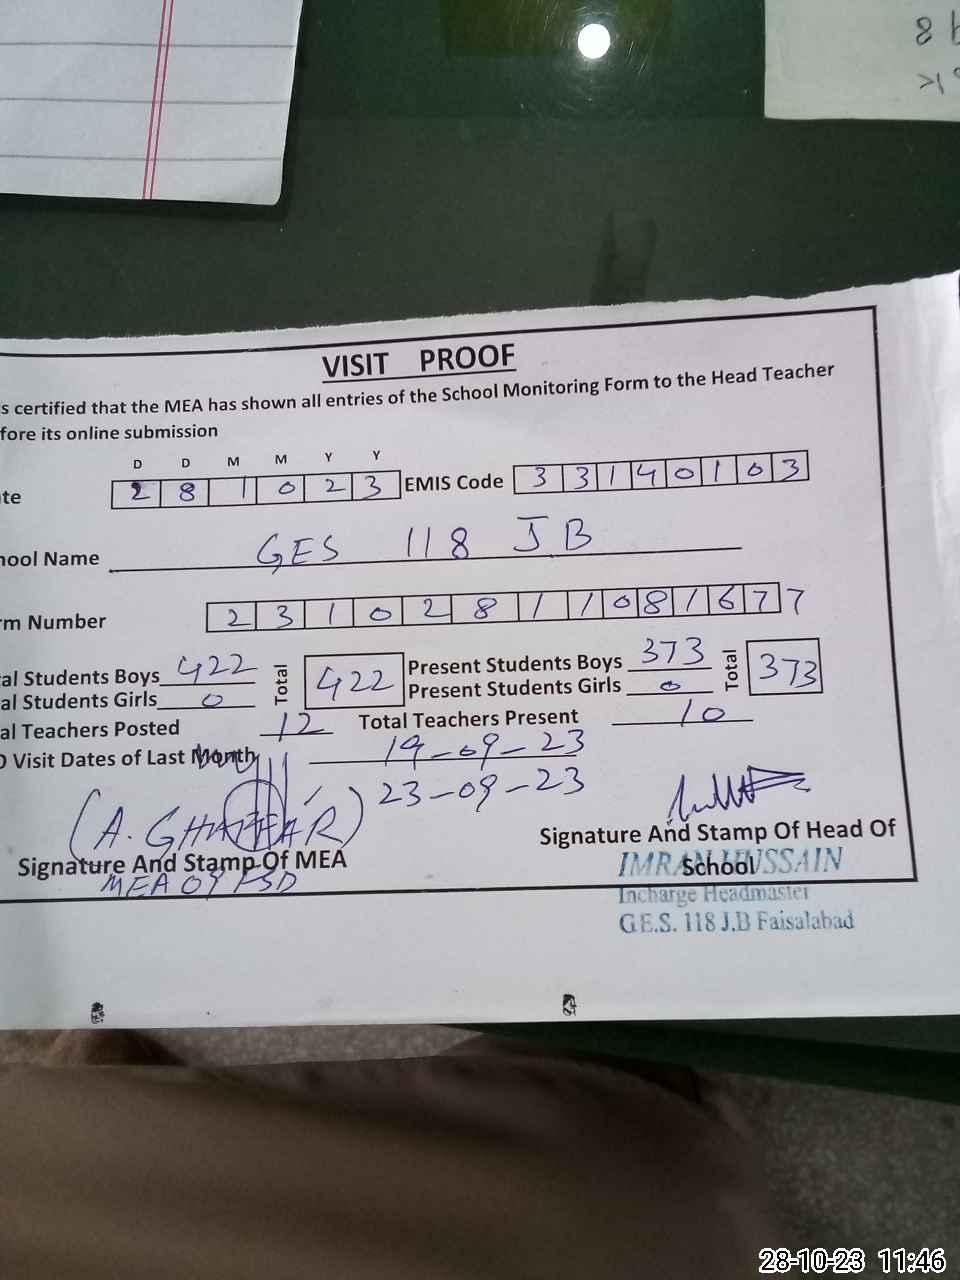 8
VISIT PROOF
s certified that the MEA has shown all entries of the School Monitoring Form to the Head Teacher
fore its online submission
D D M M Y Y
te 2 8 1 0 2 3 EMIS Code 3 3 1 4 0 1 0 3
hool Name GES 118 JB
rm Number 2 3 1 0 2 8 1 1 0 8 1 6 7 7
al Students Boys 422 Total 422 Present Students Boys 373 Total 373
al Students Girls 0 Present Students Girls 0
al Teachers Posted 12 Total Teachers Present 10
O Visit Dates of Last Month 19-09-23
23-09-23
(A. GHAFFAR)
Signature And Stamp Of MEA
MEA 09 FSD
Signature And Stamp Of Head Of
School
IMRAN HUSSAIN
Incharge Headmaster
G.E.S. 118 J.B Faisalabad
28-10-23 11:46